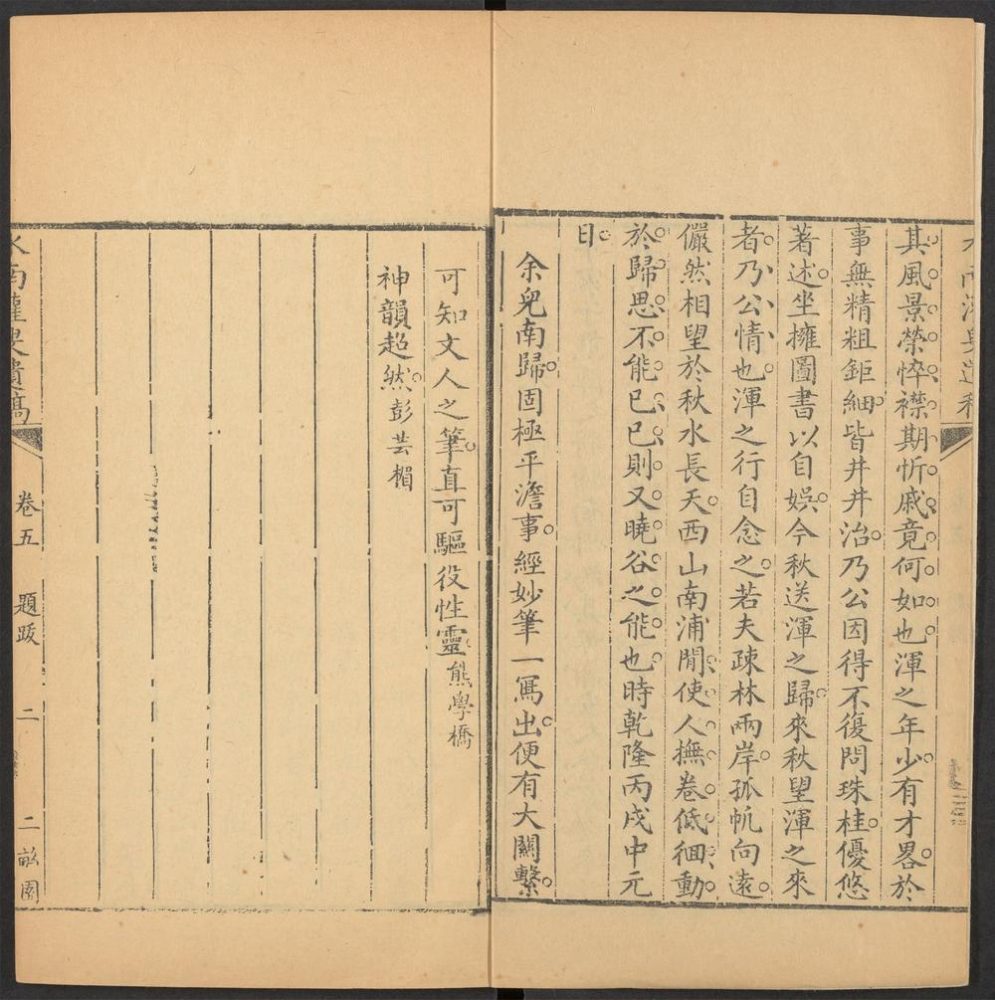 其風景榮悴襟期忻戚竟何如也渾之年少有才畧於
事無精粗鉅細皆井井治乃公因得不復問珠桂優悠
著述坐擁圖書以自娛今秋送渾之歸來秋望渾之來
者乃公情也渾之行自念之若夫疎林兩岸孤帆向遠
儼然相望於秋水長天西山南浦間使人撫卷低徊動
於歸思不能已已則又曉谷之能也時乾隆丙戌中元
日
余兒南歸固極平澹事經妙筆一寫出便有大關繫
可知文人之筆直可驅役性靈熊學橋
神韻超然彭芸楣
水南灌叟遺稿 卷五 題跋 二 二畝園